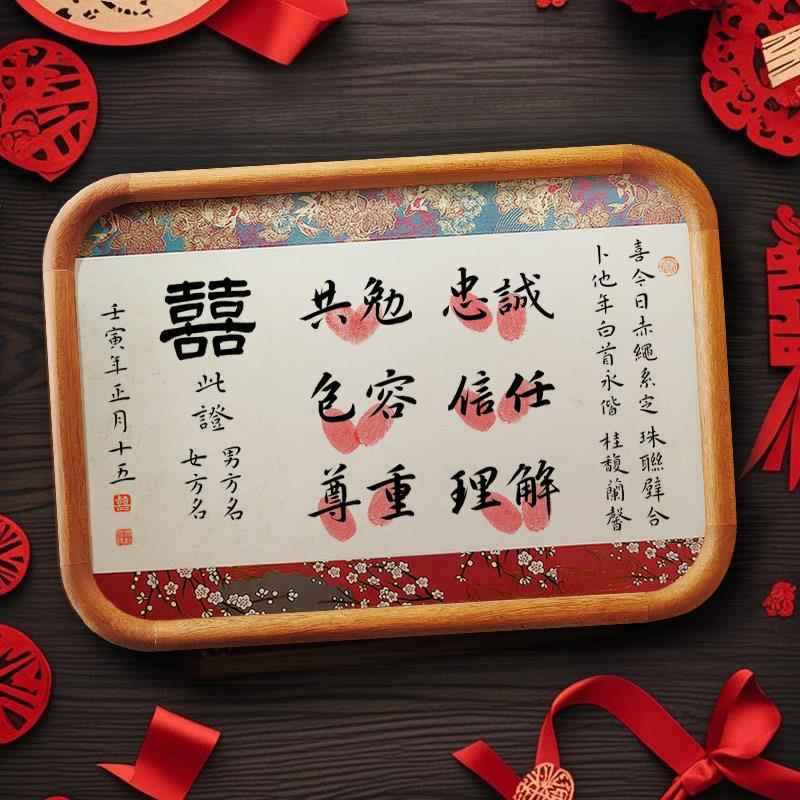 喜今日赤繩系定 珠聯璧合
卜他年白首永偕 桂馥蘭馨
忠誠
信任
理解
共勉
包容
尊重
囍
此證
男方名
女方名
壬寅年正月十五
囍